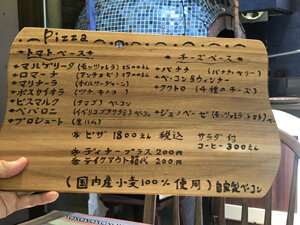 Pizza
*トマトベース*
*マルゲリータ(モッツァレラ)1500えん
*ロマーナ(アンチョビ)
*マリナーラ
*ボスカイオラ(ツナ・キノコ)
*ビスマルク(タマゴ)ベーコン
*ペパロニ
*プロシュート(生ハム)
*チーズベース*
*バナナ
*ベーコン&ウィンナー
*クワトロ(4種のチーズ)
*ジェノベーゼ(モッツァレラ,トマト)
※ピザ 1800えん 税込
サラダ付
コーヒー300えん
※ディナープラス 200円
※テイクアウト箱代 200円
(国内産小麦100%使用)自家製ベーコン